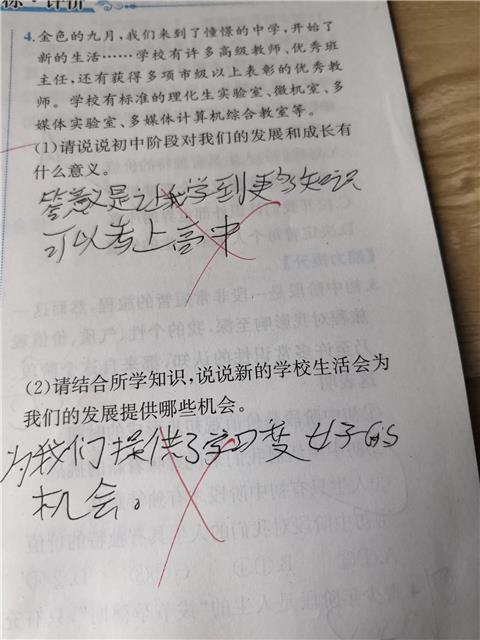 练·评价
4.金色的九月,我们来到了憧憬的中学,开始了
新的生活……学校有许多高级教师、优秀班
主任,还有获得多项市级以上表彰的优秀教
师。学校有标准的理化生实验室、微机室、多
媒体实验室、多媒体计算机综合教室等。
(1)请说说初中阶段对我们的发展和成长有
什么意义。
答意义是让我学到更多知识
可以考上高中
(2)请结合所学知识,说说新的学校生活会为
我们的发展提供哪些机会。
为我们提供了学习变好的
机会。